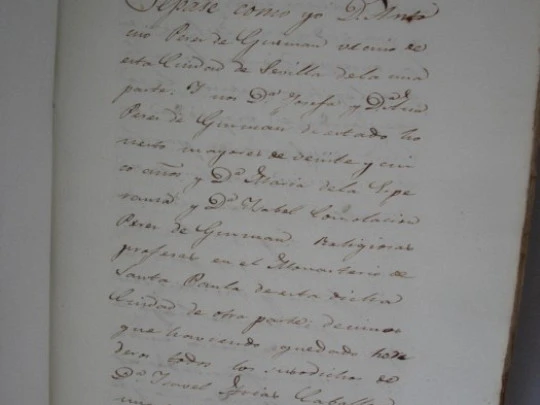 Sepase como yo Dn. Anto
nio Perez de Guzman vecino de
esta Ciudad de Sevilla de la una
parte: Y nos Da. Josefa y Da. Ana
Perez de Guzman de estado ho
nesto mayores de veinte y cin
co años y Da. Maria de la Espe
ranza y Da. Ysabel Consolacion
Perez de Guzman Religiosas
profesas en el Monasterio de
Santa Paula de esta dicha
Ciudad de otra parte; decimos
que haviendo quedado here
deros todos los susodichos de
Da. Ysavel Arias Caballe